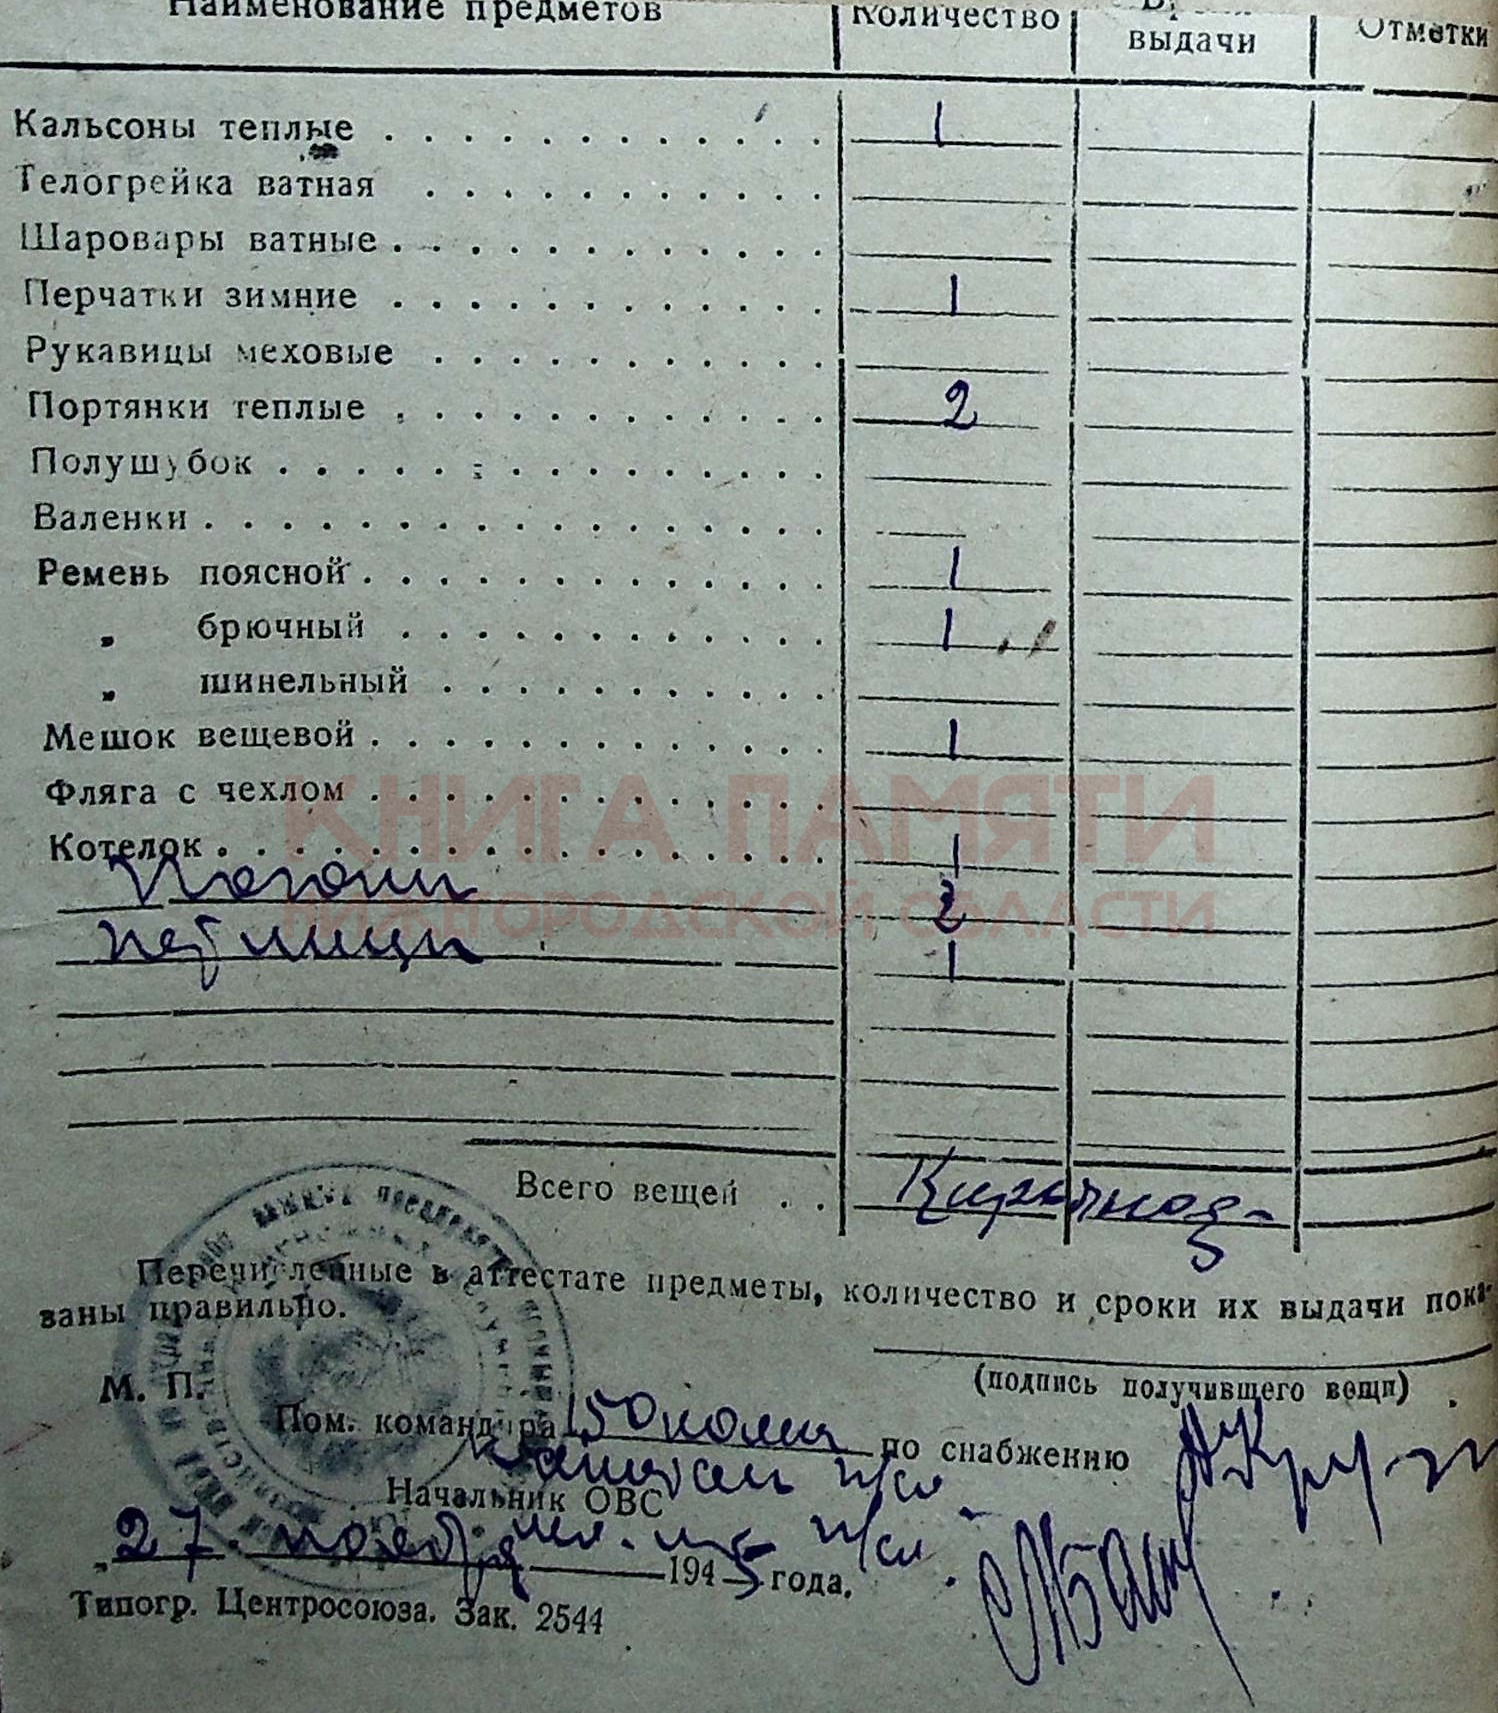 Наименование предметов Количество выдачи Отметки
Кальсоны теплые . . . . . . . . . . . . 1
Телогрейка ватная . . . . . . . . . . .
Шаровары ватные . . . . . . . . . . . .
Перчатки зимние . . . . . . . . . . . . 1
Рукавицы меховые . . . . . . . . . . .
Портянки теплые . . . . . . . . . . . . 2
Полушубок . . . . . . . . . . . . . . .
Валенки . . . . . . . . . . . . . . . . .
Ремень поясной . . . . . . . . . . . . 1
„ брючный . . . . . . . . . . . 1
„ шинельный . . . . . . . . . .
Мешок вещевой . . . . . . . . . . . . 1
Фляга с чехлом . . . . . . . . . . . .
КНИГА ПАМЯТИ
Котелок . . . . . . . . . . . . . . . . 1
Погоны 2
НИЖГОРОДСКОЙ ОБЛАСТИ
петлицы 1
Всего вещей . .
Перечисленные в аттестате предметы, количество и сроки их выдачи пока-
заны правильно.
(подпись получившего вещи)
М. П.
Пом. командира по снабжению
капитан и/сл
Начальник ОВС
и/сл
„27" ноября 1945 года.
Типогр. Центросоюза. Зак. 2544